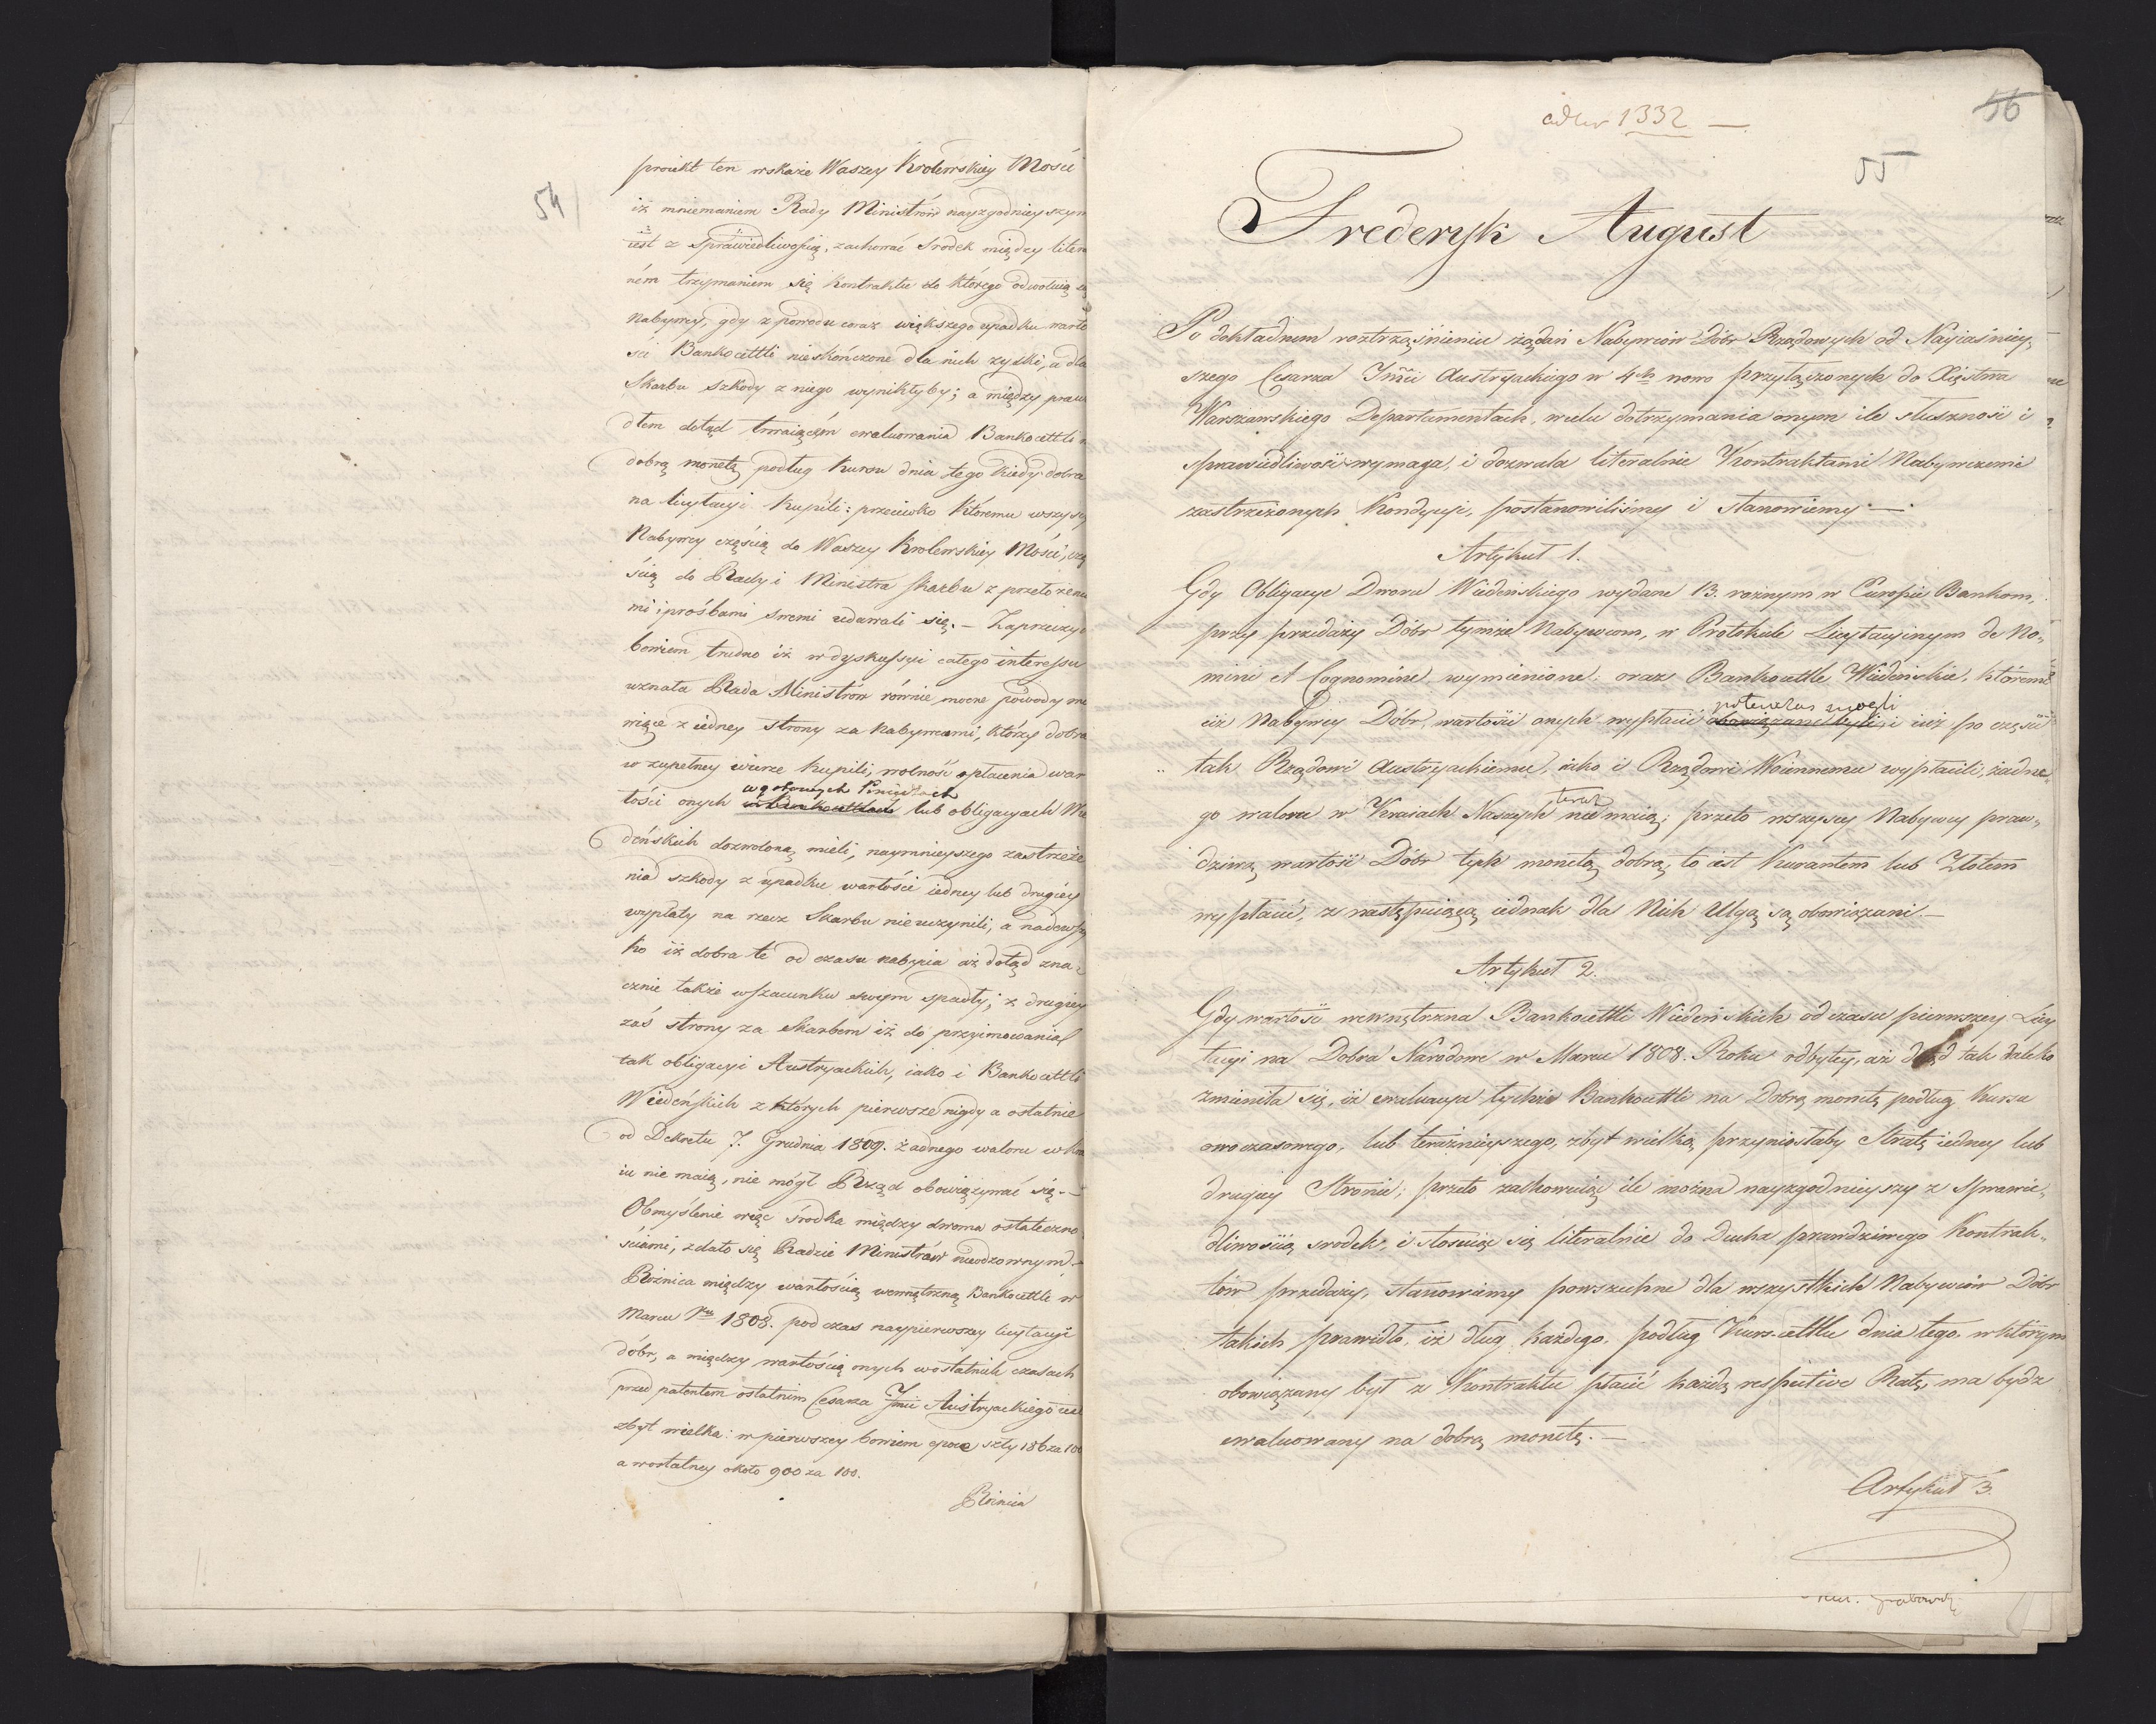 54
proiekt ten wskaże Waszey Krolewskiey Mości
iż mniemaniem Rady Ministrów nayzgodnieyszym
iest z Sprawiedliwością, zachować srodek między liter
ném trzymaniem się Kontraktu do którego odwołuią
Nabywcy, gdy z powodu coraz większego upadku warto
ści Bankocettli nieskończone dla nich zyski, a dla
Skarbu szkody z niego wynikłyby; a między praw
dłem dotąd trwaiącém ewaluowania Bankocettli
dobrą monetą podług Kursu dnia tego kiedy dobra
na licytacyi Kupili: przeciwko któremu wszyscy
Nabywcy częścią do Waszey Krolewskiey Mości, czę
ścią do Rady i Ministra Skarbu z przełoże
mi i prośbami swemi udawali się. — Zaprzeczy
bowiem trudno iż w dyskussyi całego interessu
uznała Rada Ministrów równie mocne powody
wiące z iedney strony za Nabywcami, którzy dobra
w zupełney wierze Kupili, wolność opłacenia war
w gotowych Pieniądzach
tości onych w Bankocettlach lub obligacyach Wie
deńskich dozwoloną mieli, naymnieyszego zastrzeże
nia szkody z upadku wartości iedney lub drugiéy
wypłaty na rzecz Skarbu nie uczynili, a nadewszy
ko iż dobra te od czasu nabycia aż dotąd zna
cznie także w szacunku swym spadły; z drugiey
zaś strony za Skarbem iż do przyimowania
tak obligacyi Austryackich, iako i Bankocettli
Wiedeńskich z których pierwsze nigdy a ostatnie
od Dekretu 7. Grudnia 1809. żadnego waloru w Kra
iu nie maią, nie mógł Rząd obowiązywać się. —
Obmyślenie więc środka między dwoma ostateczno
ściami, zdało się Radzie Ministrów niewzownym.
Różnica między wartością wewnętrzną Bankocettli w
Marcu Rku 1808. podczas naypierwszey licytacyi
dóbr, a między wartością onych w ostatnich czasach
przed patentem ostatnim Cesarza Jmci Austryackiego iest
zbyt wielka: w pierwszey bowiem epoce szły 186 za 100
a w ostatney około 900 za 100.
Róznica
ad Nr 1332 —
56
55
Frederyk August
Po dokładnem roztrząśnieniu żądań Nabywców Dóbr Rządowych od Nayiaśniey„
szego Cesarza Jmci Austryackiego w 4ch nowo przyłączonych do Xięstwa
Warszawskiego Departamentach, w celu dotrzymania onym ile słuszność i
sprawiedliwość wymaga, i dozwala literalnie Kontraktami Nabywczemi
zastrzeżonych Kondycyi, postanowiliśmy i stanowiemy —
Artykuł 1.
Gdy Obligacye Dworu Wiedeńskiego wydane 13. rożnym w Europie Bankom,
przy przedaży Dóbr tymże Nabywcom, w Protokule Licytacyinym de No„
mine et Cognomine wymienione; oraz Bankocettle Wiedeńskie, któremi
potenczas mogli
ciż Nabywcy Dóbr, wartość onych wypłacić obowiązani byli, i iuż po części
tak Rządowi Austryackiemu, iako i Rządowi Woiennemu wypłacili, żadne„
teraz
go waloru w Kraiach Naszych nie maią; przeto wszyscy Nabywcy praw„
dziwą wartość Dóbr tych monetą dobrą, to iest Kurantem lub Złotem
wypłacić, z następuiącą iednak dla Nich Ulgą są obowiązani. —
Artykuł 2.
Gdy wartość wewnętrzna Bankocettli Wiedeńskich od czasu pierwszey Licy
tacyi na Dobra Narodowe w Marcu 1808. Roku odbytey, aż dotąd tak daleko
zmieniła się, iż ewaluacya tychże Bankocettli na Dobrą monetę podług Kursu
owoczasowego, lub teraźnieyszego, zbyt wielką przyniosłaby Stratę iedney lub
drugiey Stronie; przeto zachowuiąc ile można nayzgodnieyszy z Sprawie„
dliwością srodek, i stosuiąc się literalnie do Ducha prawdziwego Kontrak„
tów przedaży, stanowiemy powszechne dla wszystkich Nabywców Dóbr
takich prawidło, iż dług każdego, podług Kurs-cettlu dnia tego, w którym
obowiązany był z Kontraktu płacić każdą respective Ratę, ma bydź
ewaluowany na dobrą monetę. —
Artykuł 3.
Grabowski